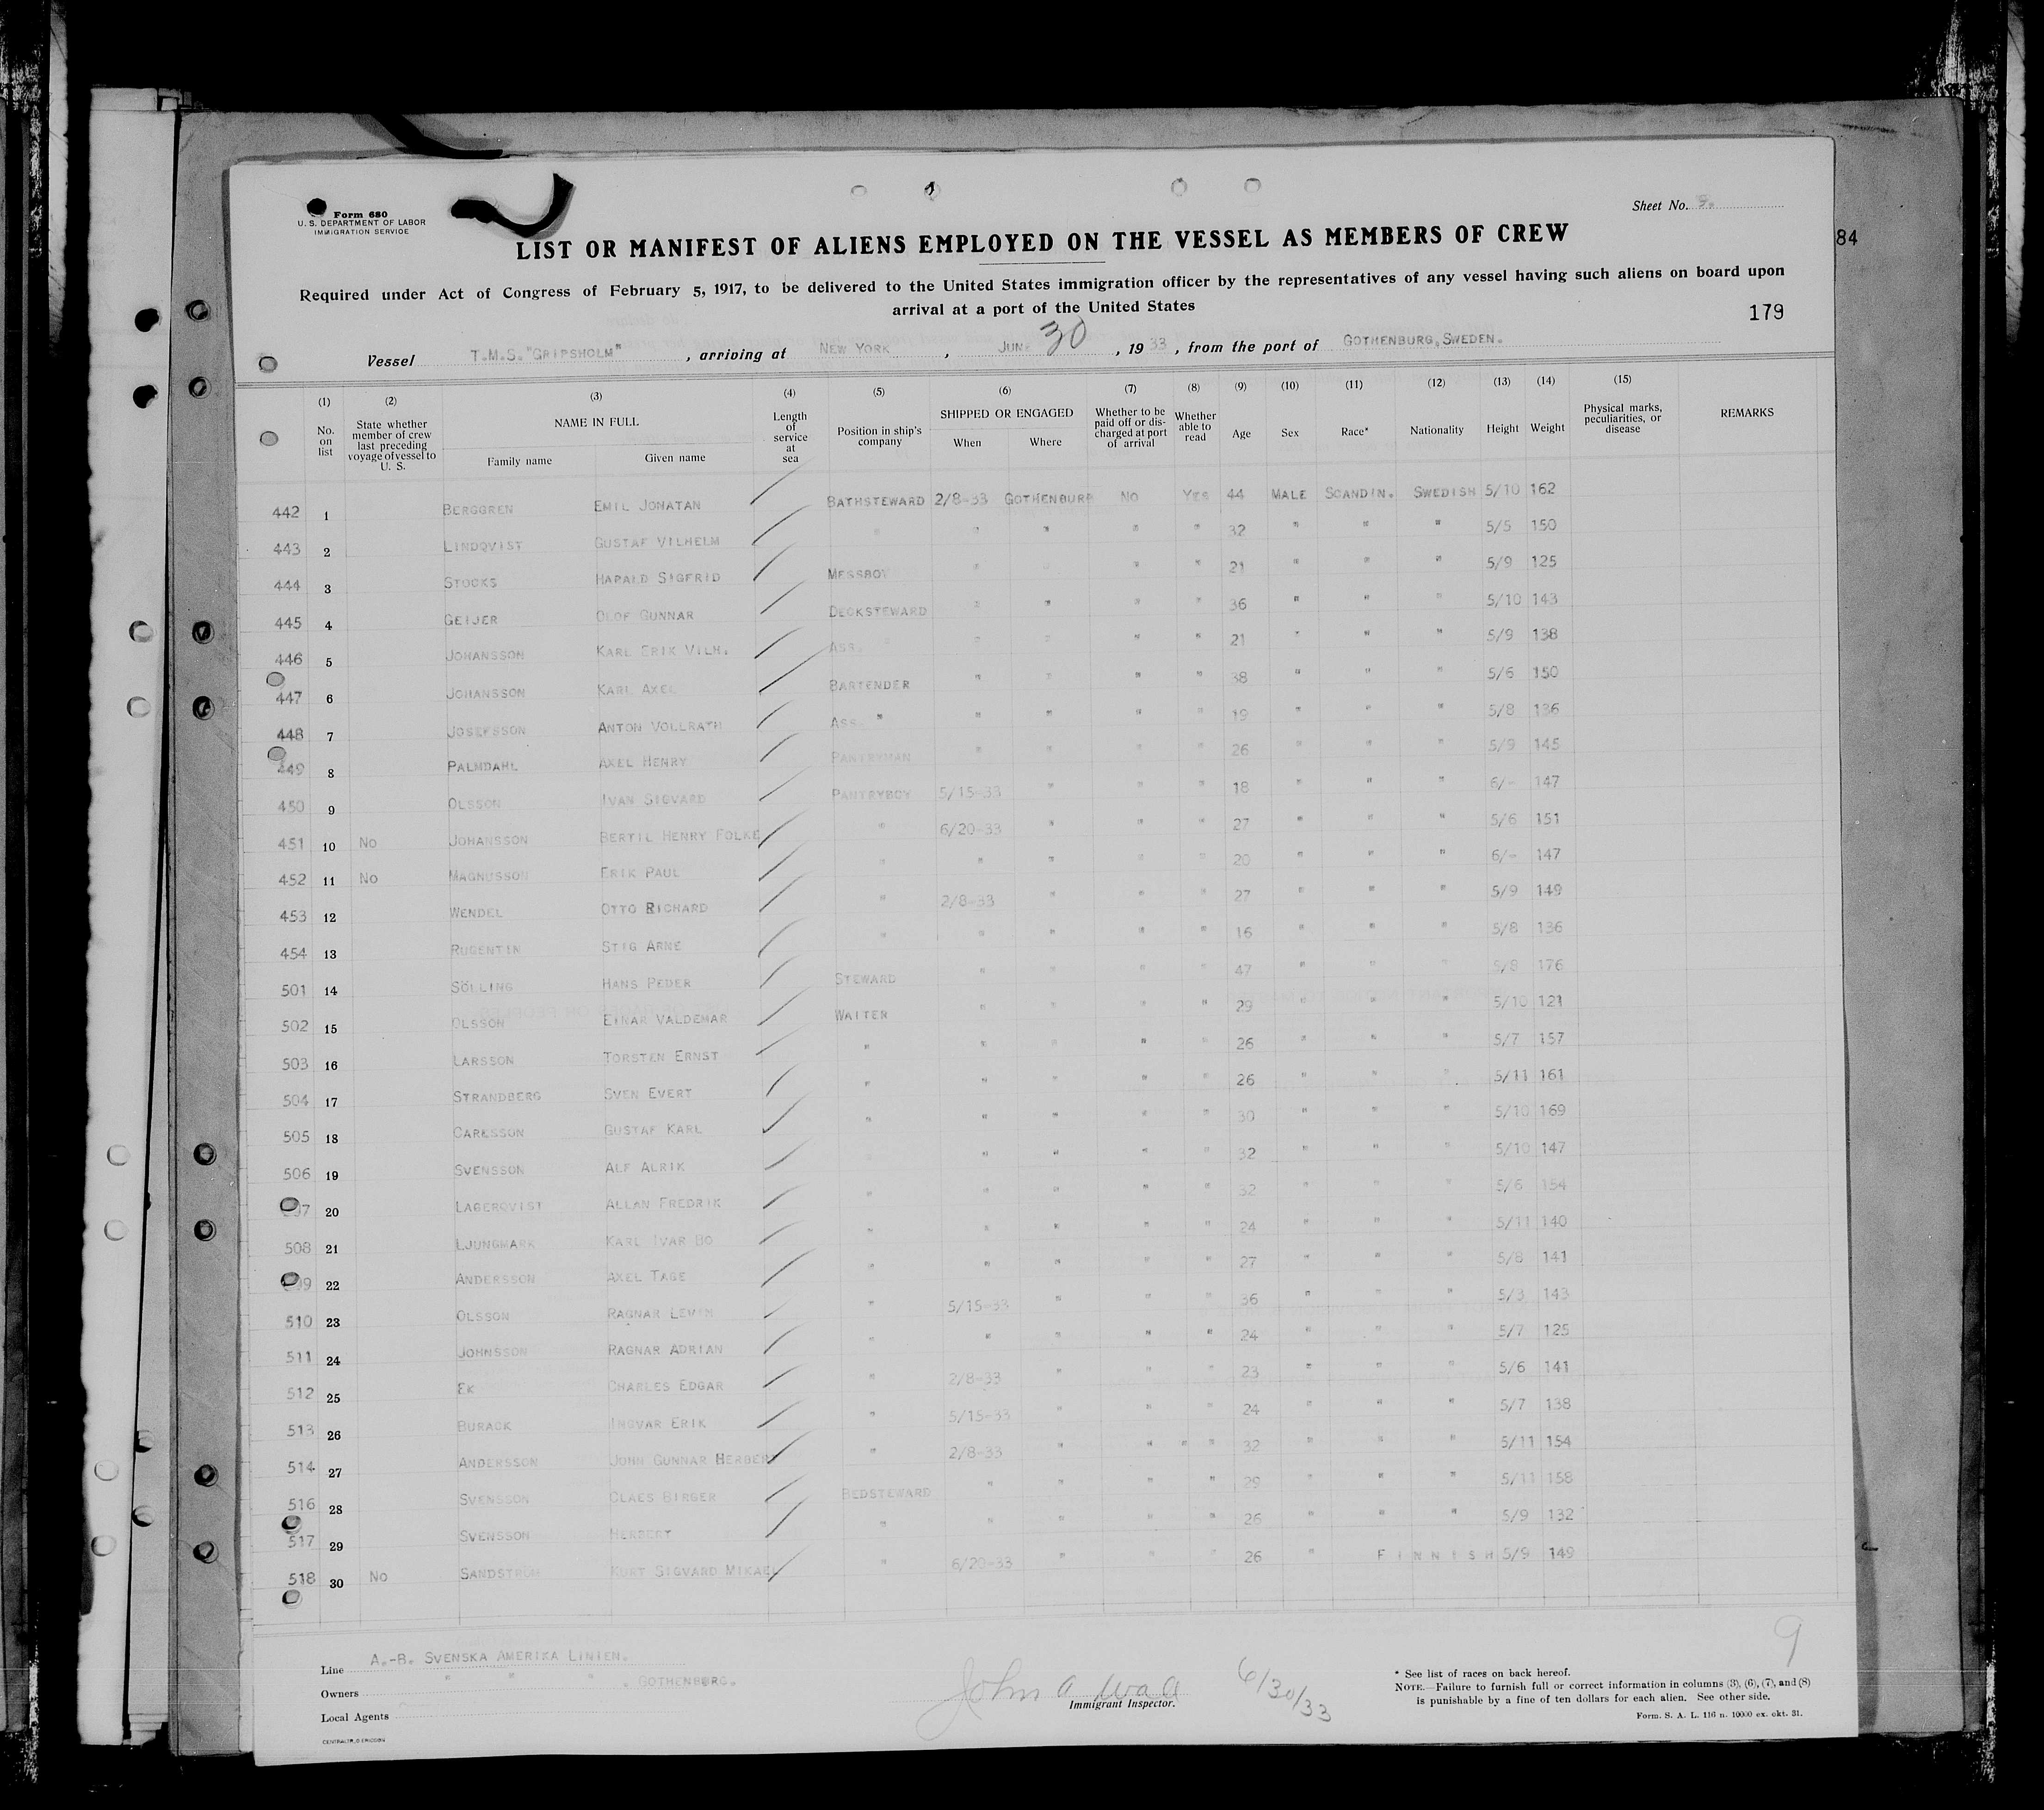 Form 680
U. S. DEPARTMENT OF LABOR
IMMIGRATION SERVICE
Sheet No.
LIST OR MANIFEST OF ALIENS EMPLOYED ON THE VESSEL AS MEMBERS OF CREW
84
Required under Act of Congress of February 5, 1917, to be delivered to the United States immigration officer by the representatives of any vessel having such aliens on board upon
arrival at a port of the United States
179
Vessel T.M.S. "GRIPSHOLM" , arriving at NEW YORK , JUNE 30 , 1933 , from the port of GOTHENBURG, SWEDEN.
(1) (2) (3) (4) (5) (6) (7) (8) (9) (10) (11) (12) (13) (14) (15)
No. on list State whether member of crew last preceding voyage of vessel to U. S. NAME IN FULL Family name Given name Length of service at sea Position in ship's company SHIPPED OR ENGAGED When Where Whether to be paid off or discharged at port of arrival Whether able to read Age Sex Race* Nationality Height Weight Physical marks, peculiarities, or disease REMARKS
442 1 BERGGREN EMIL JONATAN BATHSTEWARD 2/8-33 GOTHENBURG NO YES 44 MALE SCANDIN. SWEDISH 5/10 162
443 2 LINDQVIST GUSTAF VILHELM " " " " " 32 " " " 5/5 150
444 3 STOCKS HARALD SIGFRID MESSBOY " " " " 21 " " " 5/9 125
445 4 GEIJER OLOF GUNNAR DECKSTEWARD " " " " 36 " " " 5/10 143
446 5 JOHANSSON KARL ERIK VILH. ASS. " " " " 21 " " " 5/9 138
447 6 JOHANSSON KARL AXEL BARTENDER " " " " 38 " " " 5/6 150
448 7 JOSEFSSON ANTON VOLLRATH ASS. " " " " " 19 " " " 5/8 136
449 8 PALMDAHL AXEL HENRY PANTRYMAN " " " " 26 " " " 5/9 145
450 9 OLSSON IVAN SIGVARD PANTRYBOY 5/15-33 " " " 18 " " " 6/- 147
451 10 No JOHANSSON BERTIL HENRY FOLKE " 6/20-33 " " " 27 " " " 5/6 151
452 11 No MAGNUSSON ERIK PAUL " " " " " 20 " " " 6/- 147
453 12 WENDEL OTTO RICHARD " 2/8-33 " " " 27 " " " 5/9 149
454 13 RUGENTIN STIG ARNE " " " " " 16 " " " 5/8 136
501 14 SÖLLING HANS PEDER STEWARD " " " " 47 " " " 5/8 176
502 15 OLSSON EINAR VALDEMAR WAITER " " " " 29 " " " 5/10 121
503 16 LARSSON TORSTEN ERNST " " " " " 26 " " " 5/7 157
504 17 STRANDBERG SVEN EVERT " " " " " 26 " " " 5/11 161
505 18 CARLSSON GUSTAF KARL " " " " " 30 " " " 5/10 169
506 19 SVENSSON ALF ALRIK " " " " 32 " " " 5/10 147
20 LAGERQVIST ALLAN FREDRIK " " " " " 32 " " " 5/6 154
508 21 LJUNGMARK KARL IVAR BO " " " " " 24 " " " 5/11 140
22 ANDERSSON AXEL TAGE " " " " " 27 " " " 5/8 141
510 23 OLSSON RAGNAR " 5/15-33 " " " 36 " " " 5/3 143
511 24 JOHNSSON RAGNAR ADRIAN " " " " " 24 " " " 5/7 125
512 25 EK CHARLES EDGAR " 2/8-33 " " " 23 " " " 5/6 141
513 26 BURACK INGVAR ERIK " 5/15-33 " " " 24 " " " 5/7 138
514 27 ANDERSSON JOHN GUNNAR HERBERT " 2/8-33 " " " " 32 " " " 5/11 154
516 28 SVENSSON CLAES BIRGER BEDSTEWARD " " " " 29 " " " 5/11 158
517 29 SVENSSON HERBERT " " " " " 26 " " " 5/9 132
518 30 No SANDSTRÖM KURT SIGVARD MIKAEL " 6/20-33 " " " 26 " FINNISH 5/9 149
Line A.-B. SVENSKA AMERIKA LINIEN.
Owners " " " . GOTHENBURG.
Local Agents
John A Wad
Immigrant Inspector.
6/30/33
9
* See list of races on back hereof.
NOTE.—Failure to furnish full or correct information in columns (3), (6), (7), and (8)
is punishable by a fine of ten dollars for each alien. See other side.
Form. S. A. L. 116 n. 10000 ex. okt. 31.